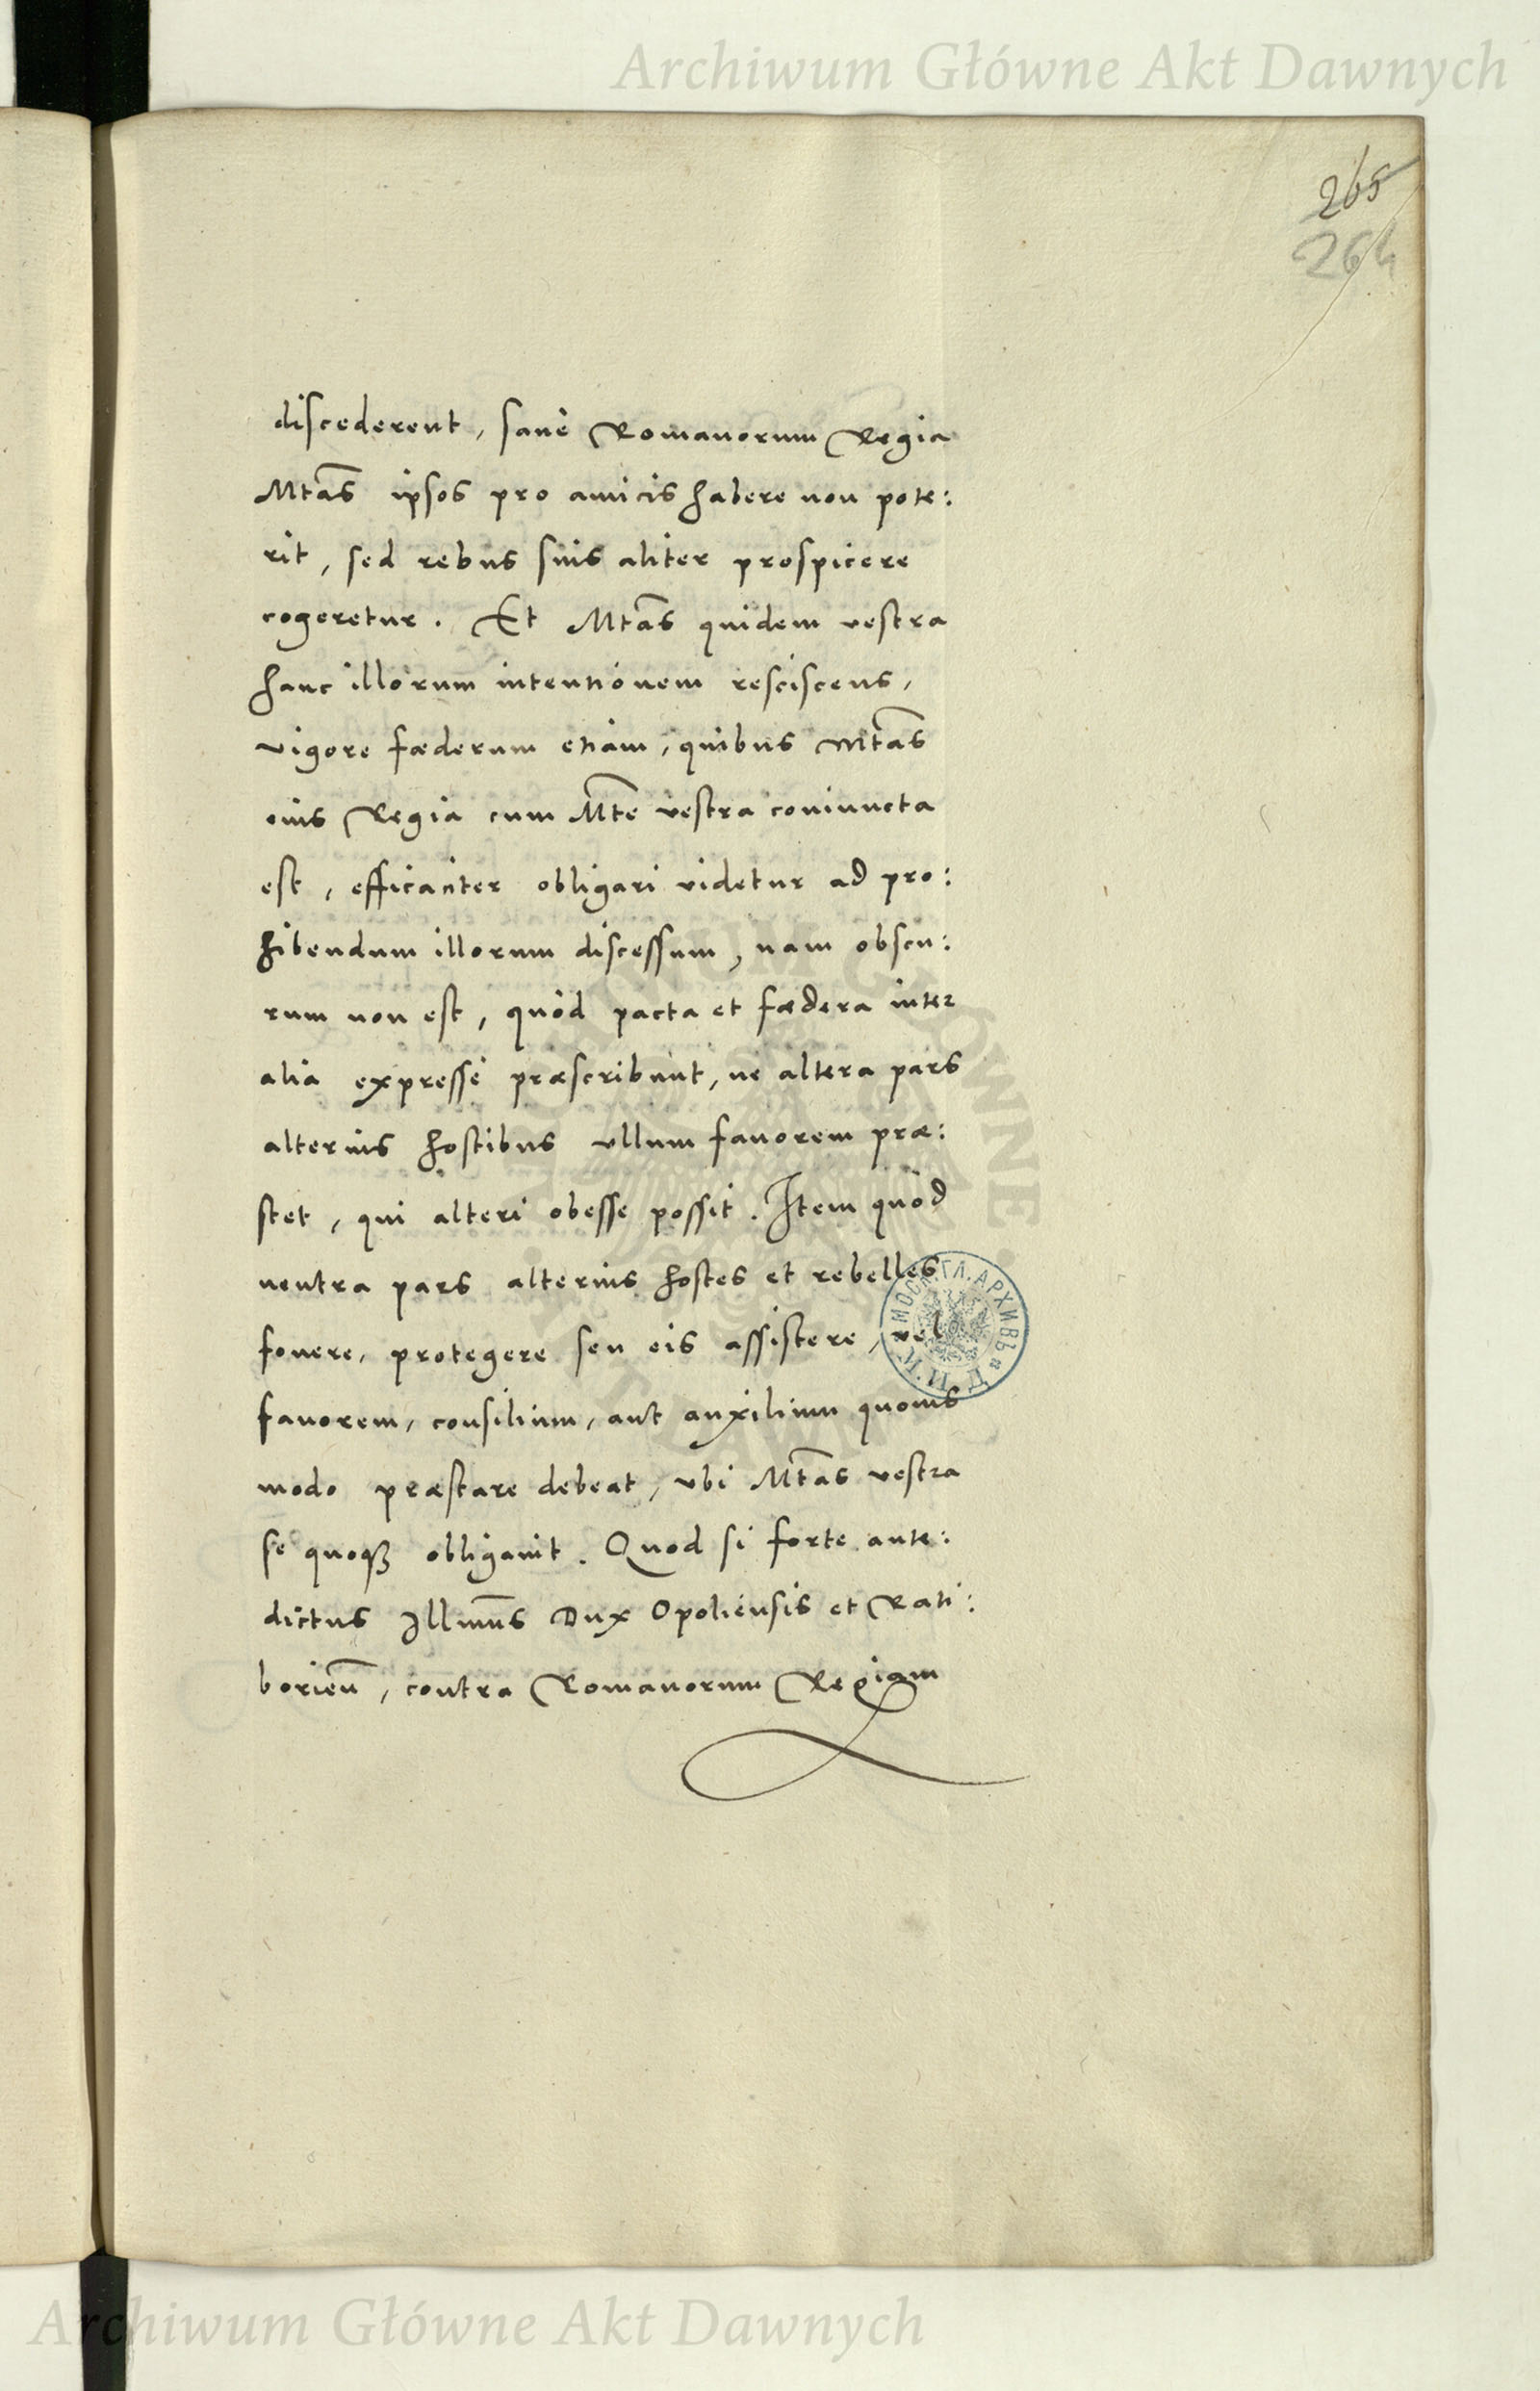 Archiwum Główne Akt Dawnych
265
264
discederent, sanè Romanorum Regia
Mtas ipsos pro amicis habere non pote:
rit, sed rebus suis aliter prospicere
cogeretur. Et Mtas quidem vestra
hanc illorum intentionem resciscens,
vigore fœderum etiam, quibus Mtas
eius Regia cum Mte vestra coniuncta
est, efficaciter obligari videtur ad pro:
hibendum illorum discessum, nam obscu:
rum non est, quòd pacta et fœdera inter
alia expressè præscribunt, ne altera pars
alterius hostibus vllum fauorem præ:
stet, qui alteri obesse possit. Item quòd
neutra pars alterius hostes et rebelles
fouere, protegere seu eis assistere, vel
fauorem, consilium, aut auxilium quouis
modo præstare debeat, vbi Mtas vestra
se quoqȝ obligauit. Quod si forte ante:
dictus Illmus Dux Opoliensis et Rati:
borien, contra Romanorum Regiam
МОСК. ГЛ. АРХИВЪ
Archiwum Główne Akt Dawnych